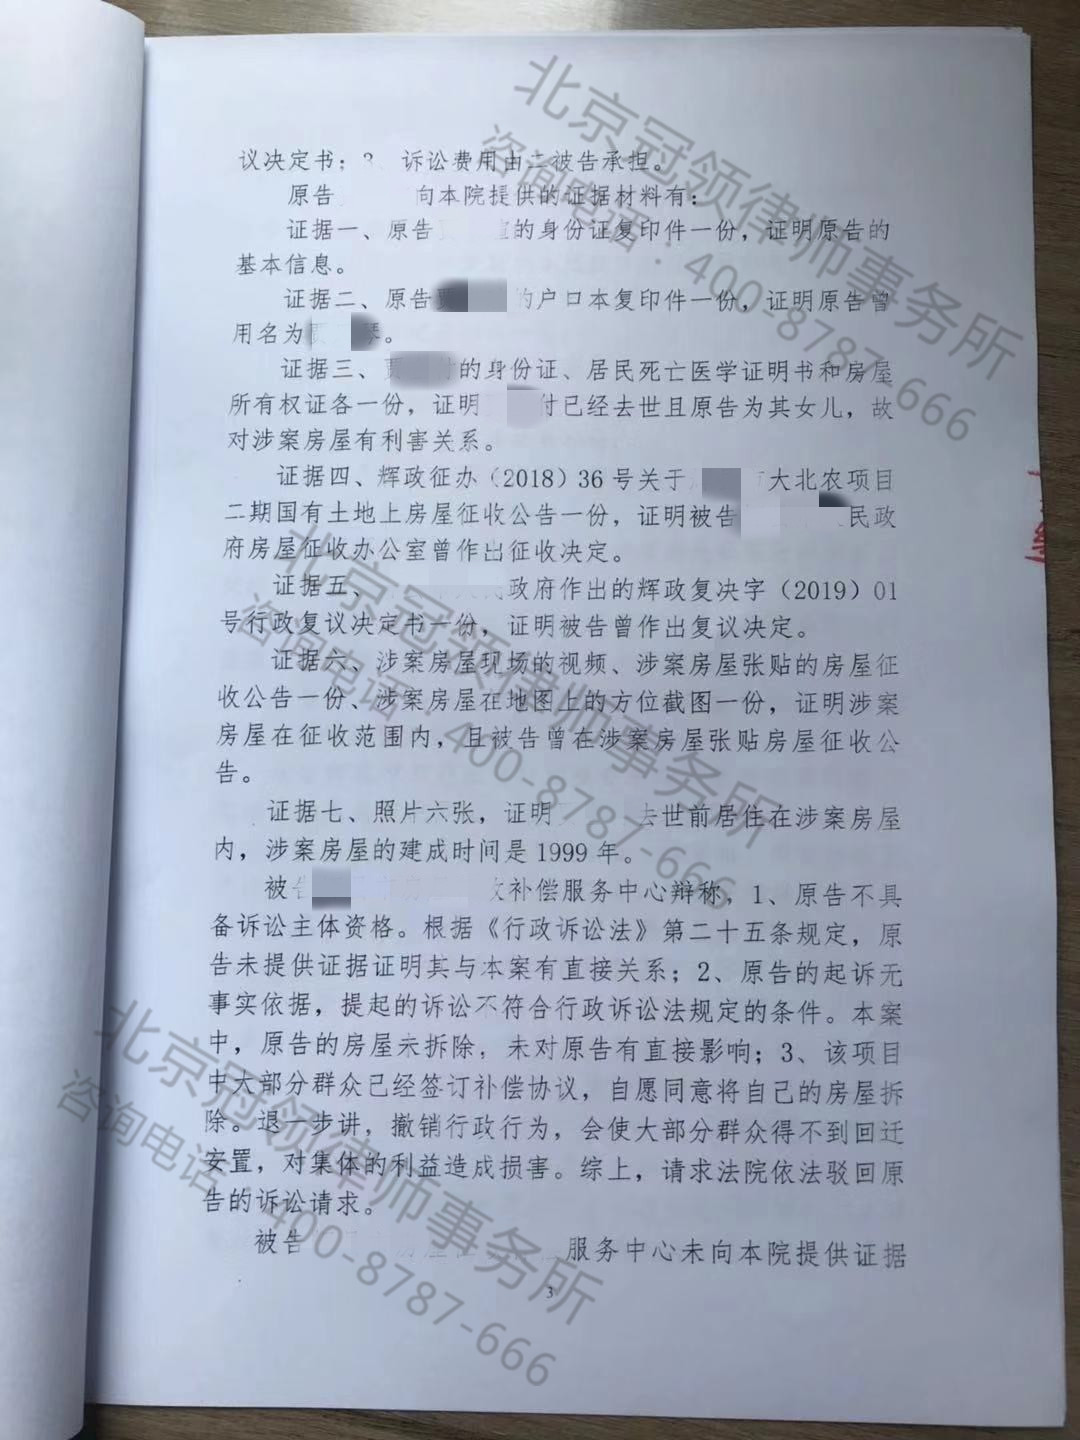 议决定书；3、诉讼费用由二被告承担。
原告 向本院提供的证据材料有：
证据一、原告 的身份证复印件一份，证明原告的
基本信息。
证据二、原告 的户口本复印件一份，证明原告曾
用名为 。
证据三、 的身份证、居民死亡医学证明书和房屋
所有权证各一份，证明 付已经去世且原告为其女儿，故
对涉案房屋有利害关系。
证据四、辉政征办（2018）36号关于 市大北农项目
二期国有土地上房屋征收公告一份，证明被告 民政
府房屋征收办公室曾作出征收决定。
证据五、 政府作出的辉政复决字（2019）01
号行政复议决定书一份，证明被告曾作出复议决定。
证据六、涉案房屋现场的视频、涉案房屋张贴的房屋征
收公告一份、涉案房屋在地图上的方位截图一份，证明涉案
房屋在征收范围内，且被告曾在涉案房屋张贴房屋征收公
告。
证据七、照片六张，证明 去世前居住在涉案房屋
内，涉案房屋的建成时间是1999年。
被告 补偿服务中心辩称，1、原告不具
备诉讼主体资格。根据《行政诉讼法》第二十五条规定，原
告未提供证据证明其与本案有直接关系；2、原告的起诉无
事实依据，提起的诉讼不符合行政诉讼法规定的条件。本案
中，原告的房屋未拆除，未对原告有直接影响；3、该项目
中大部分群众已经签订补偿协议，自愿同意将自己的房屋拆
除。退一步讲，撤销行政行为，会使大部分群众得不到回迁
安置，对集体的利益造成损害。综上，请求法院依法驳回原
告的诉讼请求。
被告 服务中心未向本院提供证据
3
北京冠领律师事务所
咨询电话：400-8787-666
北京冠领律师事务所
咨询电话：400-8787-666
北京冠领律师事务所
咨询电话：400-8787-666